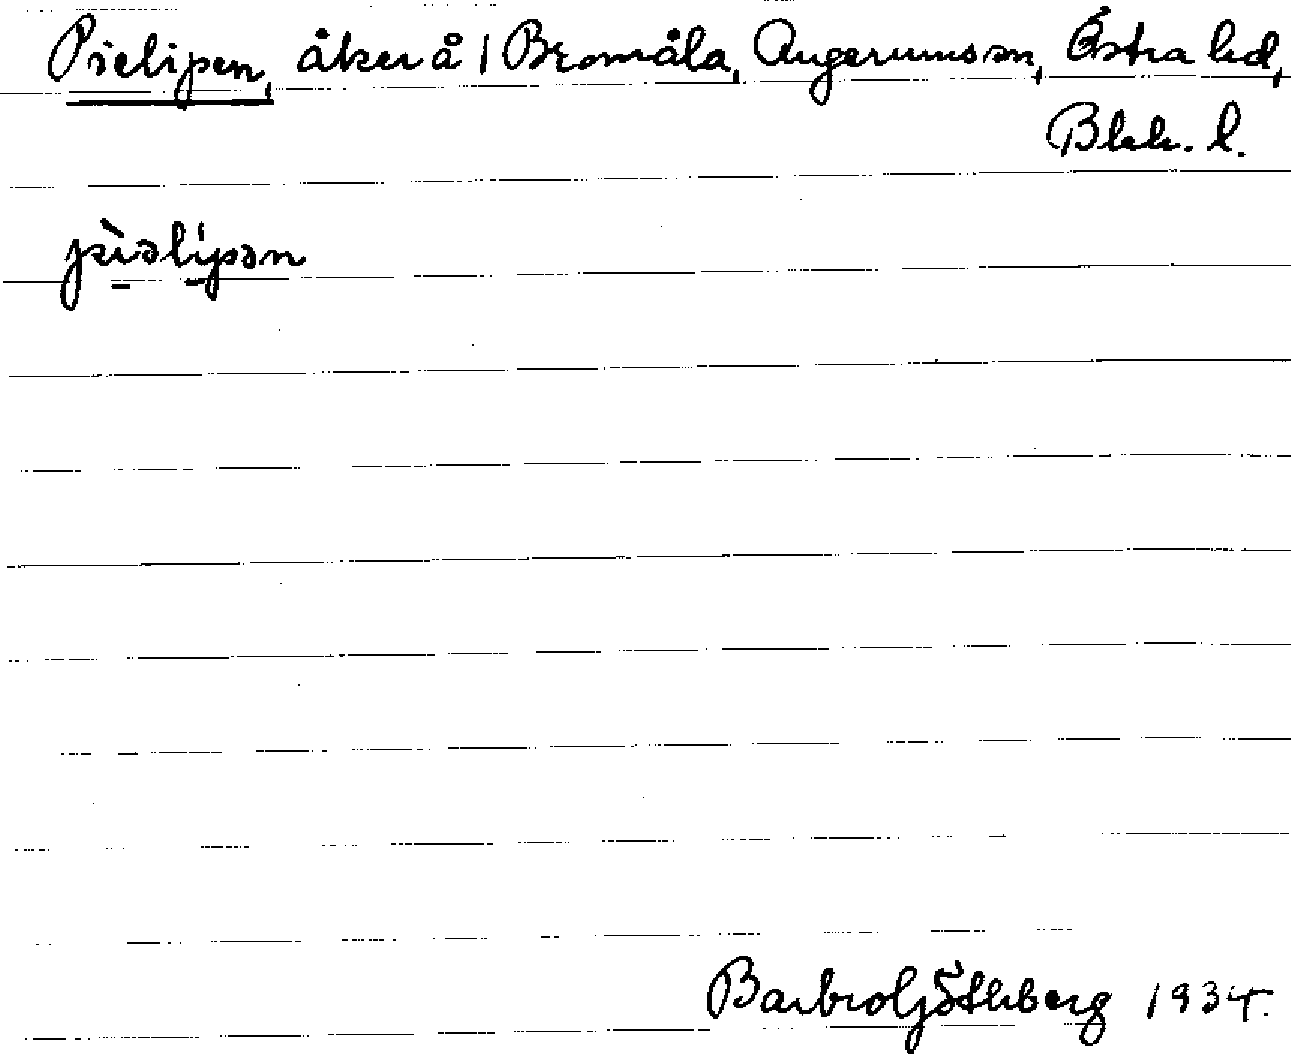 Pielipen, åker å / Bromåla, Augerums sn, Östra hd,
Blek. l.
pìəlípən
Barbro Götherberg 1934.